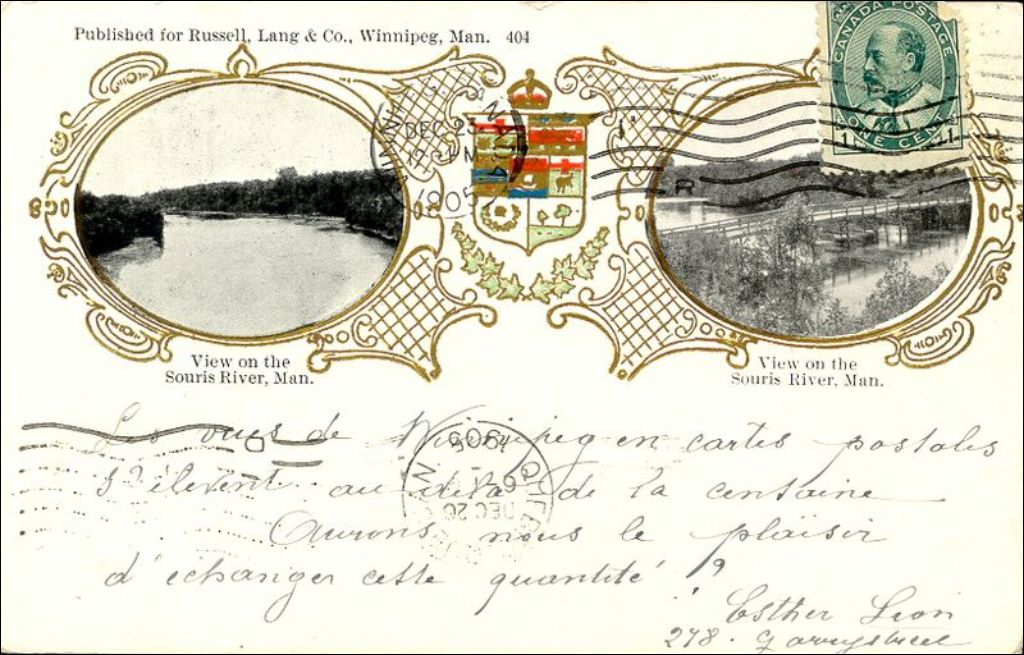 Published for Russell, Lang & Co., Winnipeg, Man. 404
CANADA POSTAGE
ONE CENT
1 1
WINNIPEG
DEC 23
1905
View on the
Souris River, Man.
View on the
Souris River, Man.
Les vues de Winnipeg en cartes postales
s'élèvent au delà de la centaine
Aurons nous le plaisir
d'échanger cette quantité ?
1905
DEC 26
Esther Lion
278. Garry street